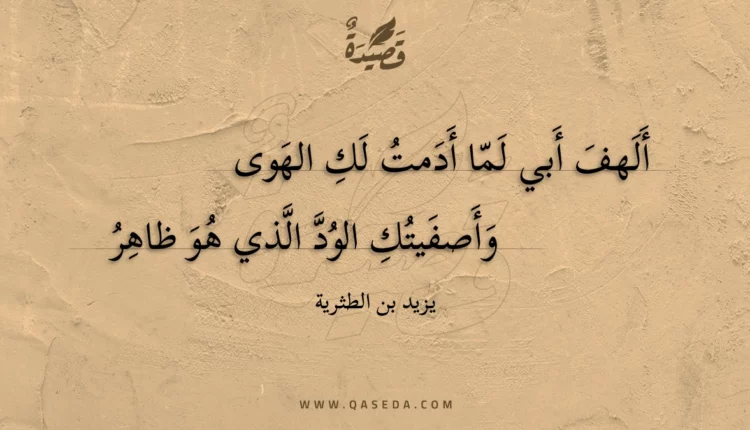 قَصِيْدَةٌ
أَلَهفَ أَبي لَمّا أَدَمتُ لَكِ الهَوى
وَأَصفَيتُكِ الوُدَّ الَّذي هُوَ ظاهِرُ
يزيد بن الطثرية
WWW.QASEDA.COM